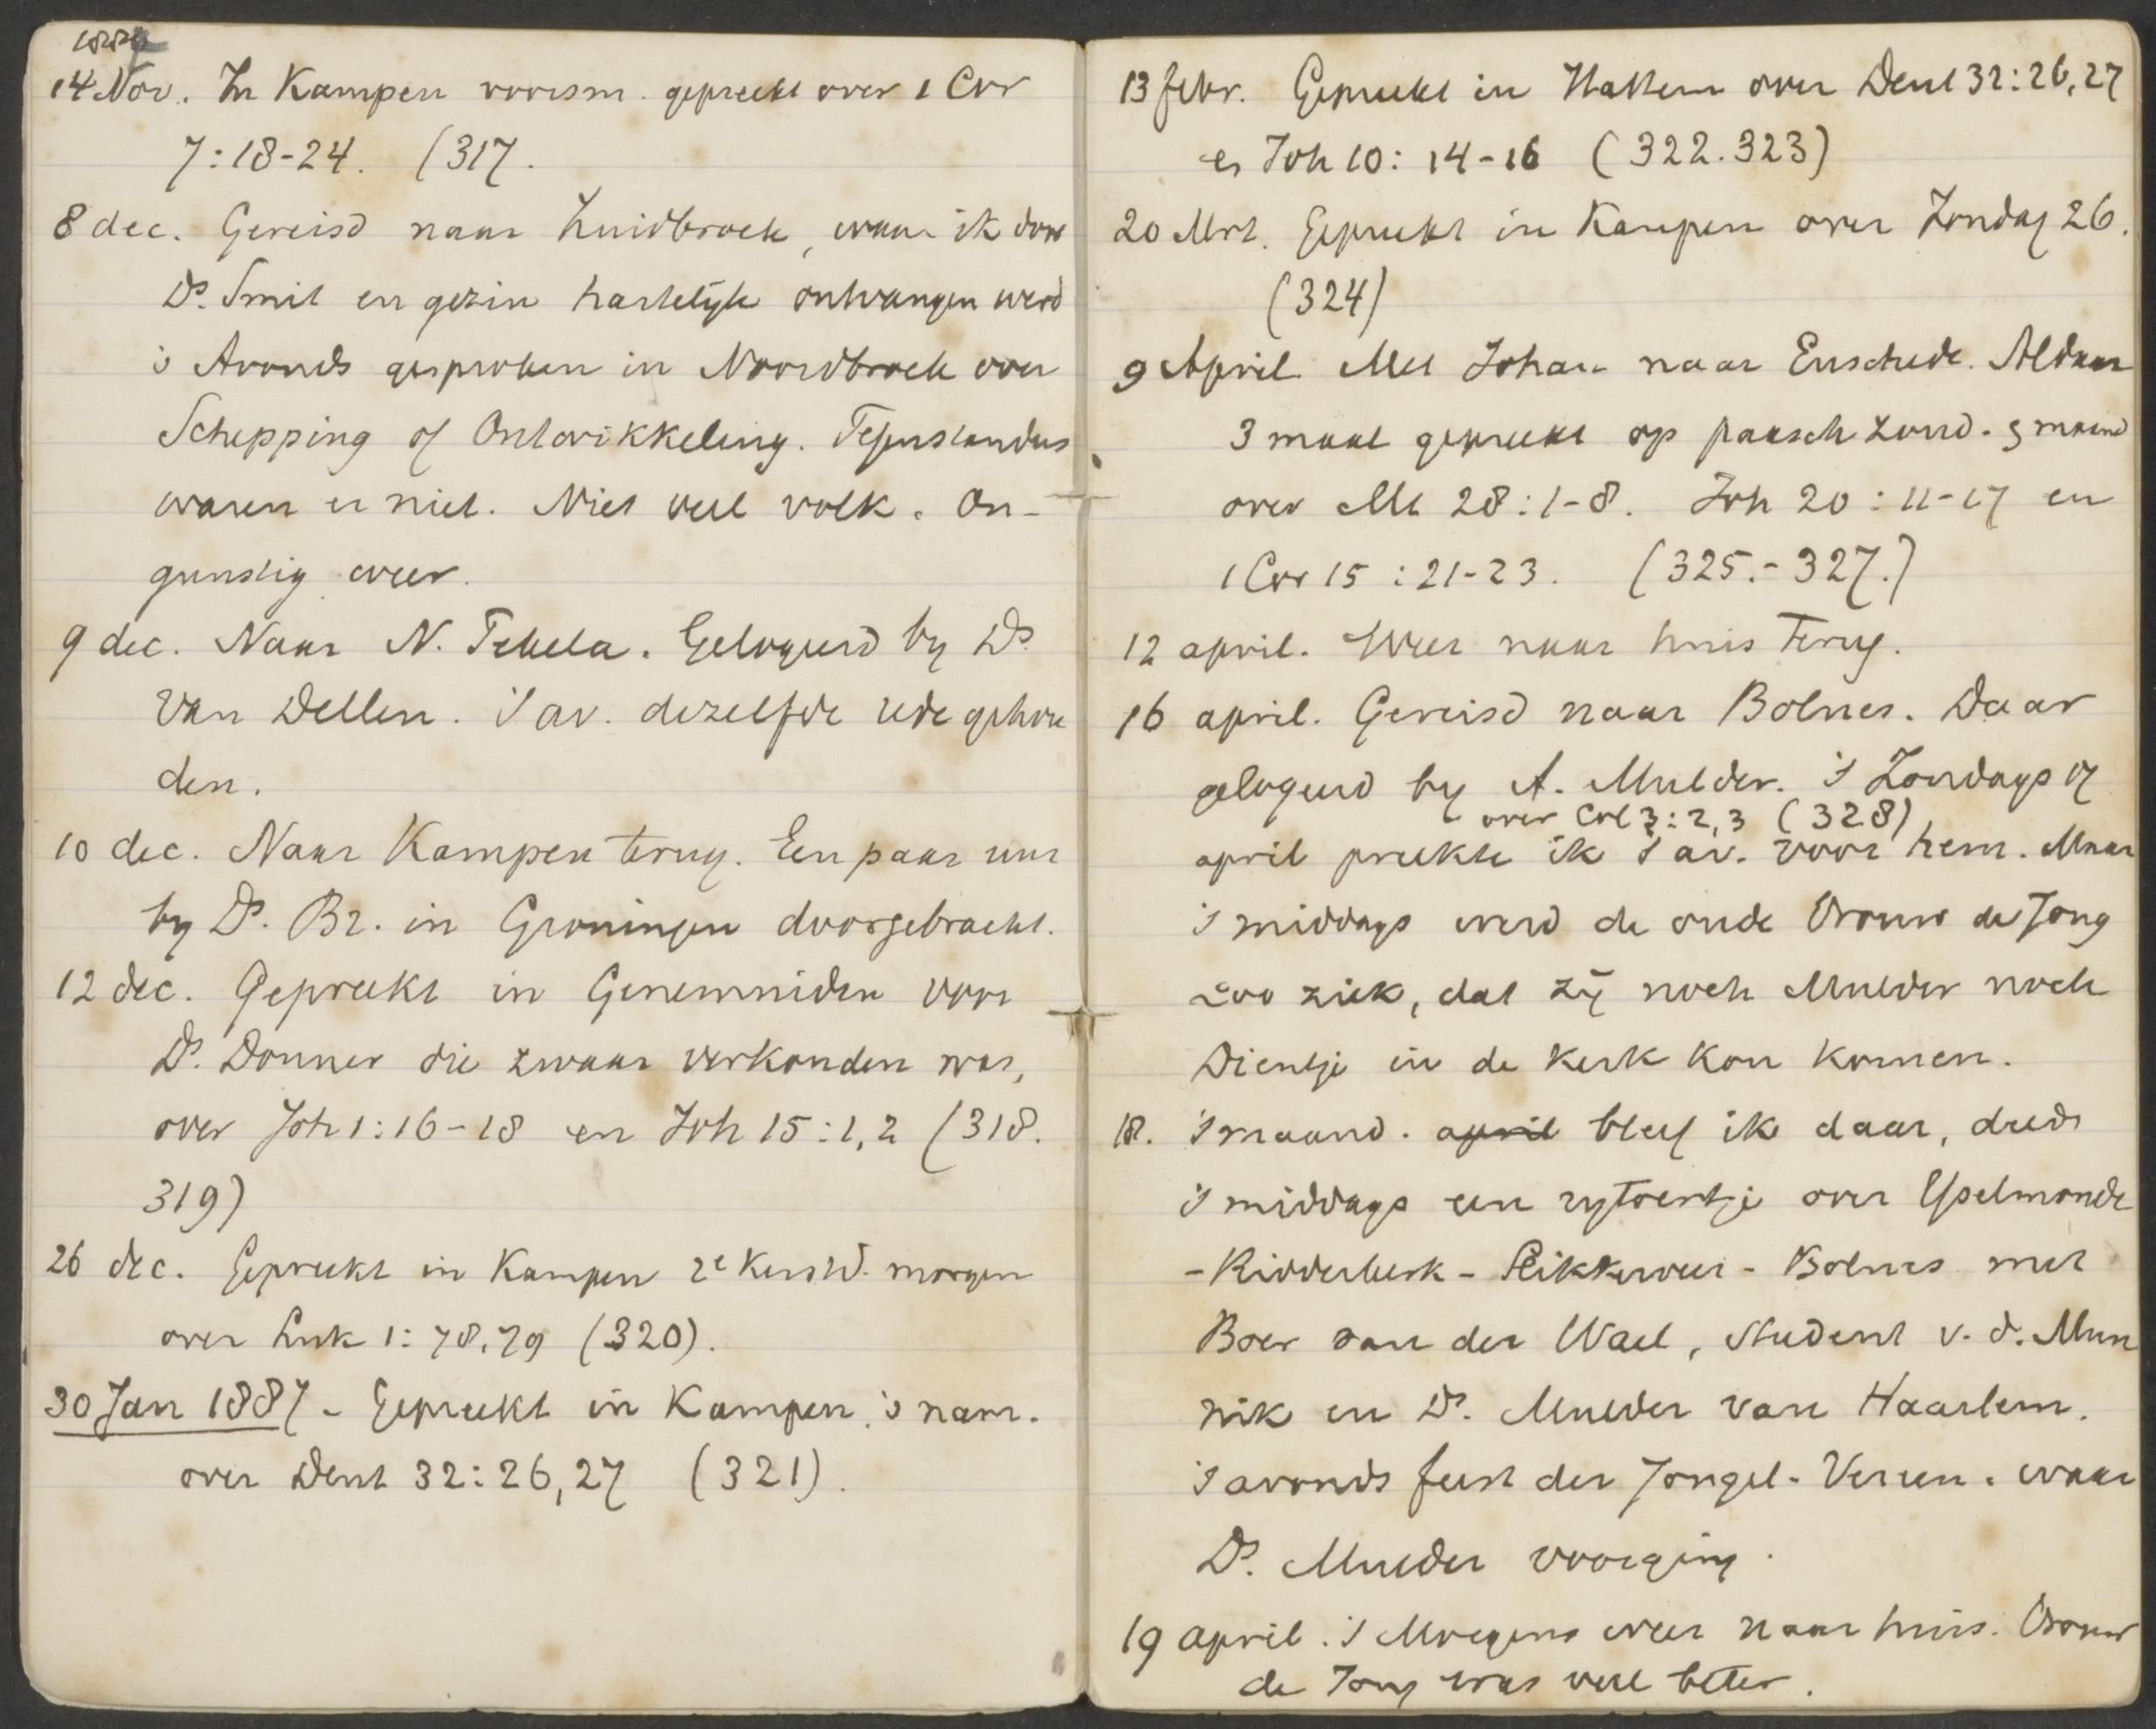 14 Nov. In Kampen voorm. gepreekt over 1 Cor
7:18-24. (317.
8 dec. Gereisd naar Zuidbroek, waar ik door
Ds. Smit en gezin hartelijk ontvangen werd
's Avonds gesproken in Noordbroek over
Schepping of Ontwikkeling. Tegenstanders
waren er niet. Niet veel volk. On-
gunstig weer.
9 dec. Naar N. Pekela. Gelogeerd by Ds
Van Dellen. 's av. dezelfde rede gehou
den.
10 dec. Naar Kampen terug. Een paar uur
by Ds. Br. in Groningen doorgebracht.
12 dec. Gepreekt in Genemuiden voor
Ds. Donner die zwaar verkouden was,
over Joh 1:16-18 en Joh 15:1,2 (318.
319)
26 dec. Gepreekt in Kampen 2e Kerstd. morgen
over Luk 1:78,79 (320).
30 Jan 1887 - Gepreekt in Kampen 's nam.
over Deut 32:26,27 (321).
13 febr. Gepreekt in Hattem over Deut 32:26,27
en Joh 10:14-16 (322.323)
20 Mrt. Gepreekt in Kampen over Zondag 26.
(324)
9 April Met Johan naar Enschede. Aldaar
3 maal gepreekt op paasch zond. & maand
over Mt 28:1-8. Joh 20:11-17 en
1 Cor 15:21-23. (325.-327.)
12 april. Weer naar huis terug.
16 april. Gereisd naar Bolnes. Daar
gelogeerd by A. Mulder. 's Zondags 17
over Col 3:2,3 (328)
april preekte ik 's av. voor hem. Maar
's middags werd de oude Vrouw de Jong
zoo ziek, dat zij noch Mulder noch
Dientje in de kerk kon komen.
18. 's maand. april bleef ik daar, deed
's middags een rytoertje over Yselmonde
-Ridderkerk-Rikkerveer-Bolnes met
Boer van der Wael, student v. d. Mun
nik en Ds. Mulder van Haarlem.
's avonds feest der Jongel. Vereen. waar
Ds. Mulder voorging.
19 april. 's Morgens weer naar huis. Vrouw
de Jong was veel beter.